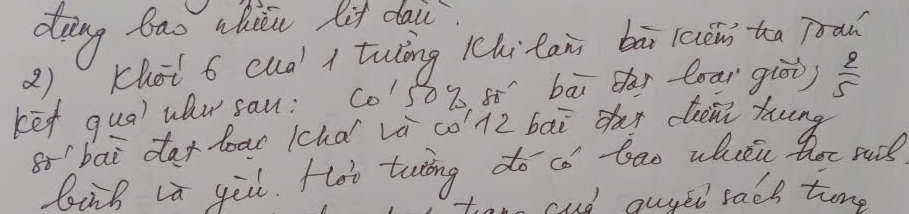 đựng bao nhiêu lít dầu.
2) Khối 6 của 1 trường khi làm bài kiểm tra Toán
kết quả như sau: có 50% số bài đạt loại giỏi; 2/5
số bài đạt loại khá và có 12 bài đạt điểm trung
bình và yếu. Hỏi trường đó có bao nhiêu học sinh.
trang của quyển sách trong